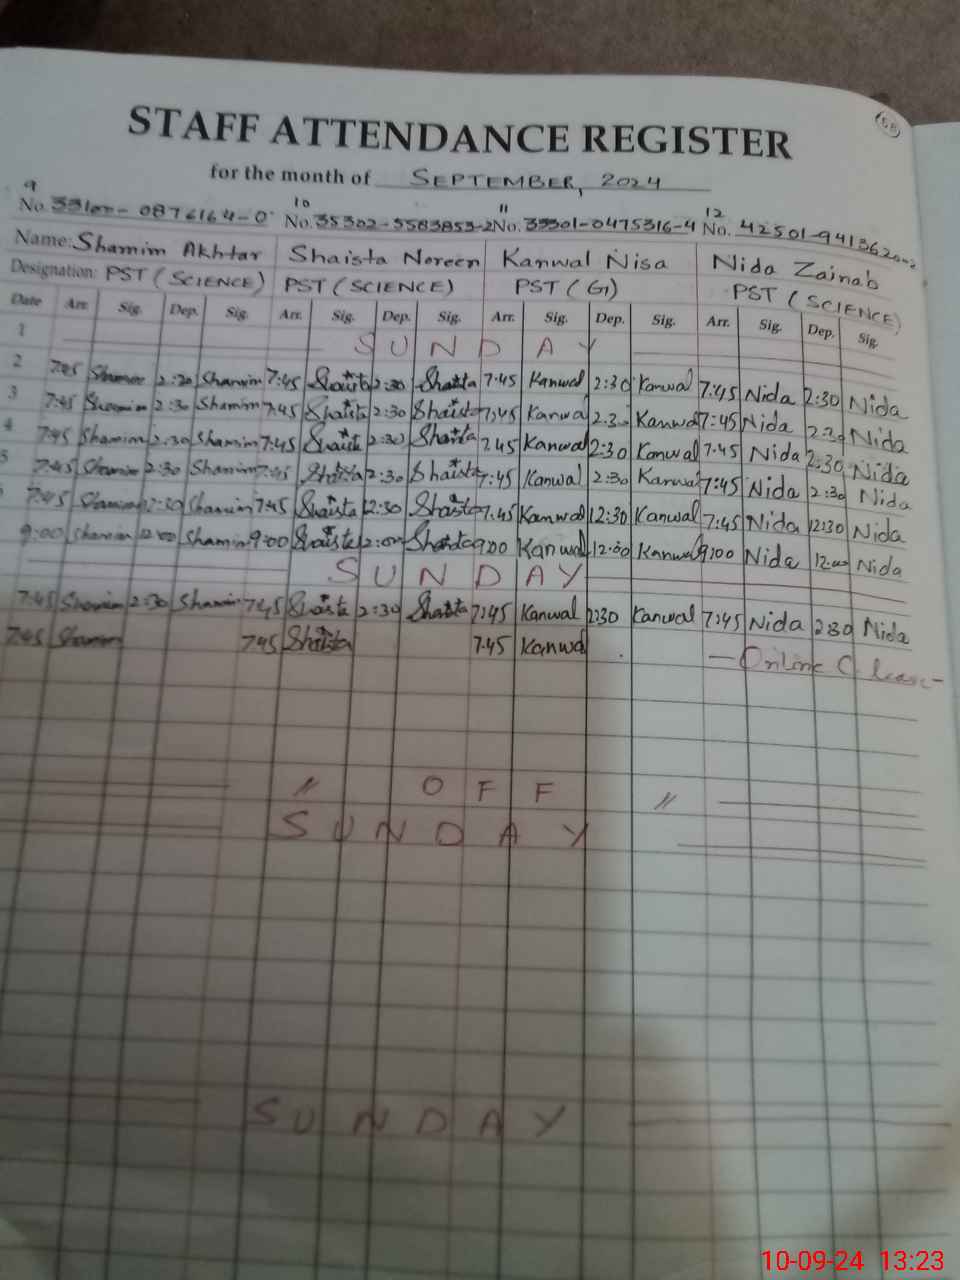 68
STAFF ATTENDANCE REGISTER
for the month of SEPTEMBER, 2024
9 10 11 12
No. 33100-0876164-0 No. 35302-5583853-2 No. 33301-0475316-4 No. 42501-9413620-2
Name: Shamim Akhtar Shaista Noreen Kanwal Nisa Nida Zainab
Designation: PST (SCIENCE) PST (SCIENCE) PST (G) PST (SCIENCE)
Date Arr. Sig. Dep. Sig. Arr. Sig. Dep. Sig. Arr. Sig. Dep. Sig. Arr. Sig. Dep. Sig.
1 SUNDAY
2 7:45 Shamim 2:30 Shamim 7:45 Shaista 2:30 Shaista 7:45 Kanwal 2:30 Kanwal 7:45 Nida 2:30 Nida
3 7:45 Shamim 2:30 Shamim 7:45 Shaista 2:30 Shaista 7:45 Kanwal 2:30 Kanwal 7:45 Nida 2:30 Nida
4 7:45 Shamim 2:30 Shamim 7:45 Shaista 2:30 Shaista 7.45 Kanwal 2:30 Kanwal 7.45 Nida 2:30 Nida
5 7:45 Shamim 2:30 Shamim 7:45 Shaista 2:30 Shaista 7:45 Kanwal 2:30 Kanwal 7:45 Nida 2:30 Nida
7:45 Shamim 12:30 Shamim 7:45 Shaista 12:30 Shaista 7.45 Kanwal 12:30 Kanwal 7:45 Nida 12:30 Nida
9:00 Shamim 12:00 Shamim 9:00 Shaista 12:00 Shaista 9:00 Kanwal 12:30 Kanwal 9:00 Nida 12:00 Nida
SUNDAY
7:45 Shamim 2:30 Shamim 7:45 Shaista 2:30 Shaista 7:45 Kanwal 2:30 Kanwal 7:45 Nida 2:30 Nida
7:45 Shamim 7:45 Shaista 7.45 Kanwal - Online C. leave -
" OFF "
SUNDAY
SUNDAY
10-09-24 13:23